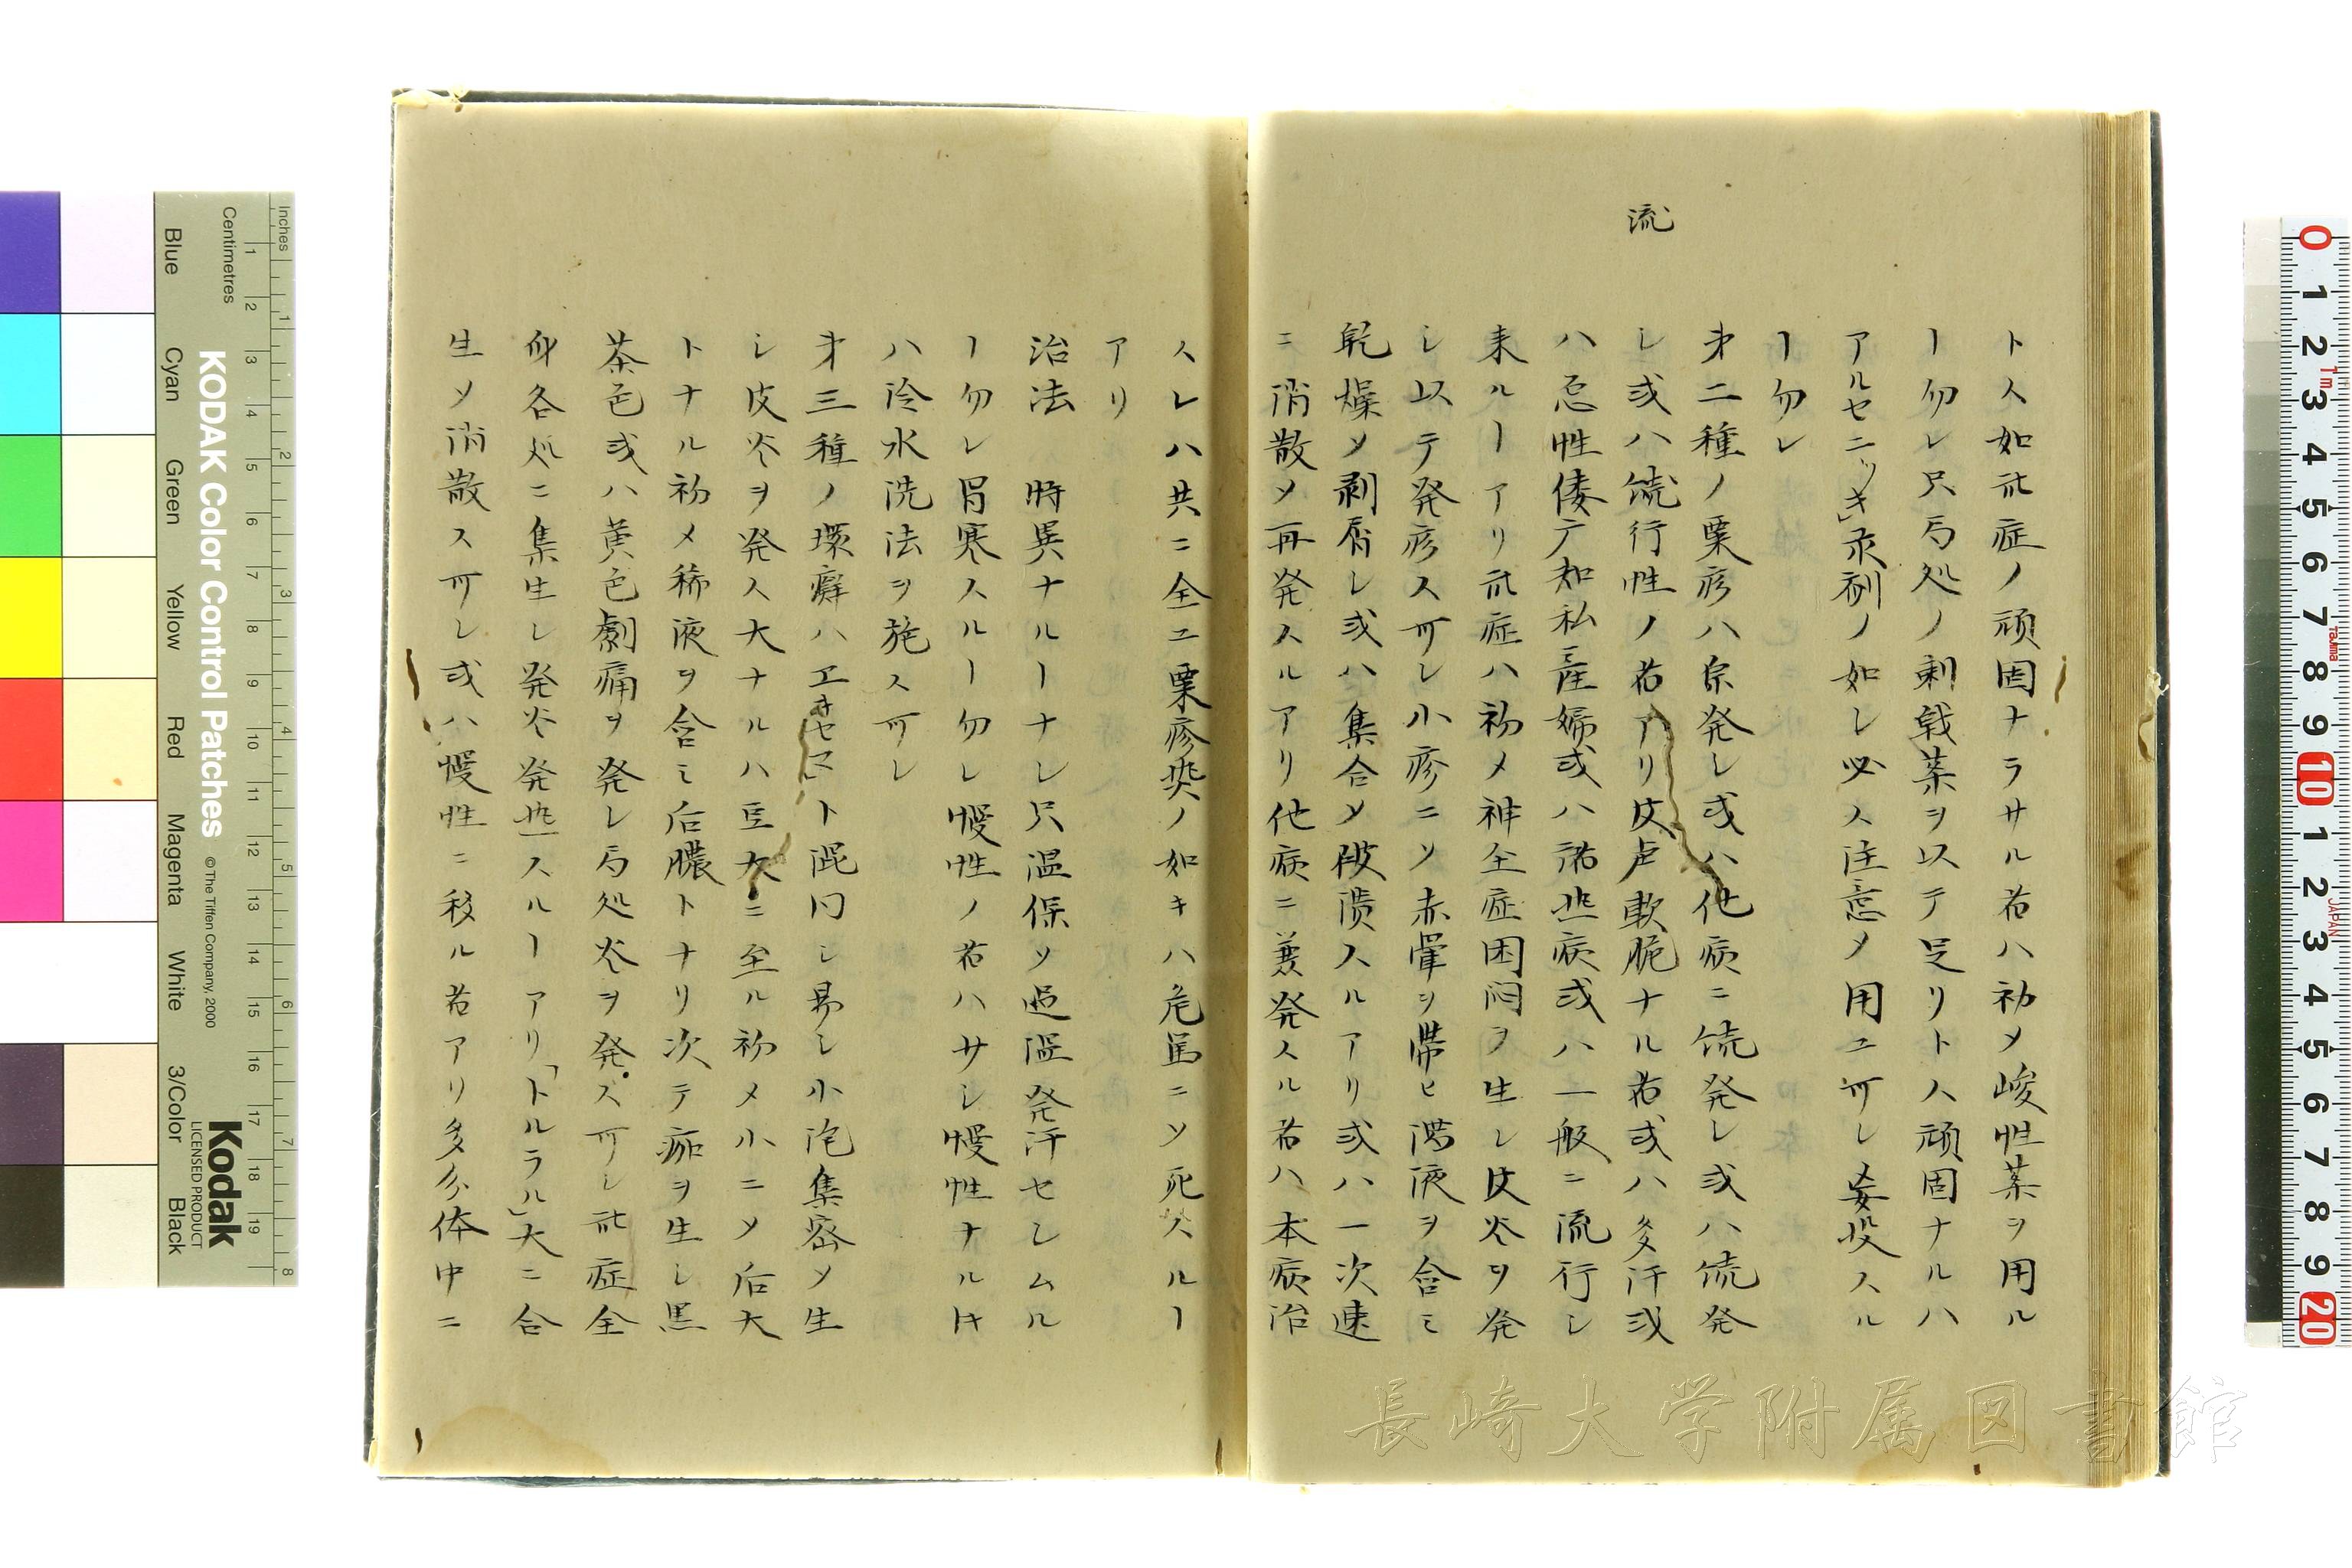 流
トス如此症ノ頑固ナラサル者ハ初メ峻性薬ヲ用ル
ー勿レ只局処ノ刺戟薬ヲ以テ足リトス頑固ナルハ
アルセニッキ」泉剤ノ如シ必ス注意メ用ユ可レ妄投スル
ー勿レ
第二種ノ粟疹ハ原発シ或ハ他病ニ続発シ或ハ続発
シ或ハ流行性ノ者アリ皮膚軟脆ナル者或ハ多汗或
ハ忌性倭广知私産婦或ハ諸熱病或ハ一般ニ流行シ
来ルーアリ此症ハ初メ神全症困悶ヲ生シ皮炎ヲ発
シ以テ発疹ス可シ小疹ニソ赤暈ヲ帯ヒ濁液ヲ含ミ
乾燥ソ剥屑シ或ハ集合メ破潰スルアリ或ハ一次速
ニ消散メ再発スルアリ他病ニ兼発スル者ハ本病治
スレハ共ニ全ユ粟疹熱ノ如キハ危篤ニソ死スルー
アリ
治法 特異ナルーナシ只温保ソ過温発汗セシムル
ー勿レ冒寒スルー勿レ慢性ノ者ハサシ慢性ナルキ
ハ冷水洗法ヲ施ス可シ
第三種ノ環癬ハエキセマ」ト混同シ易シ小泡集密メ生
シ皮炎ヲ発ス大ナルハ豆大ニ至ル初メ小ニメ后大
トナル初メ稀液ヲ含ミ后膿トナリ次テ痂ヲ生シ黒
茶色或ハ黄色劇痛ヲ発シ局処炎ヲ発ス可シ此症全
身各処ニ集生シ発炎発熱スルーアリ「トルラル」大ニ合
生ソ消散ス可シ或ハ慢性ニ移ル者アリ多分体中ニ
Inches
Centimetres
KODAK Color Control Patches
© The Tiffen Company, 2000
Kodak
LICENSED PRODUCT
Blue Cyan Green Yellow Red Magenta White 3/Color Black
長崎大学附属図書館